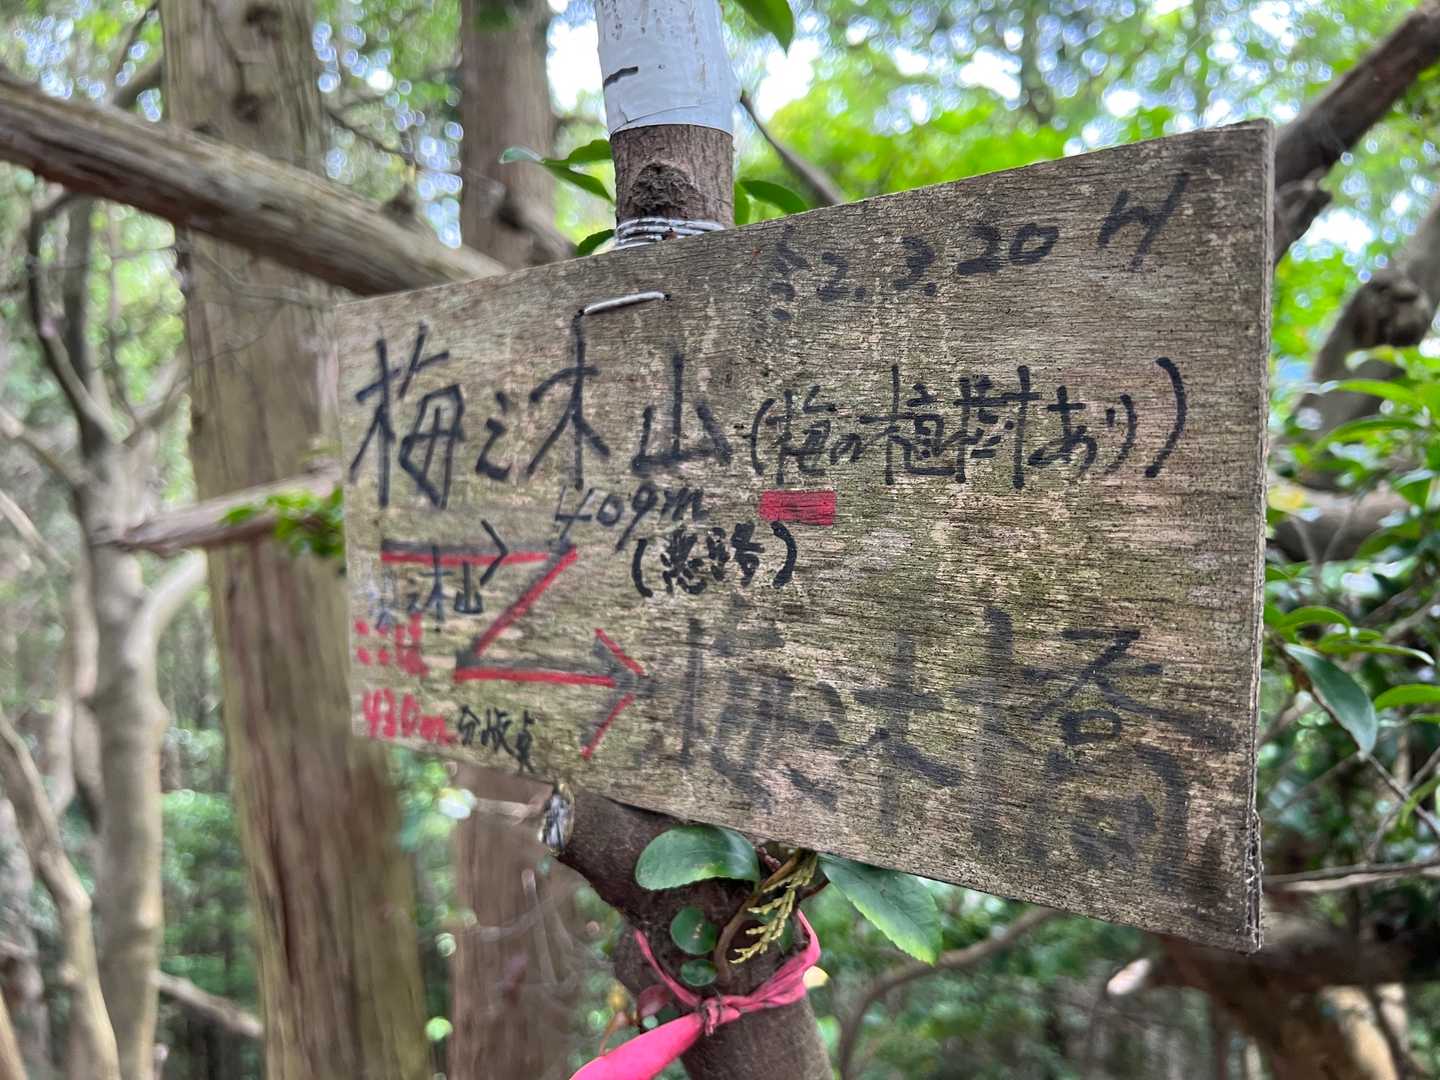 2.3.20
梅之木山(梅の植樹あり)
409m
(悪路)
之木山
430m 分岐点
梅之木橋